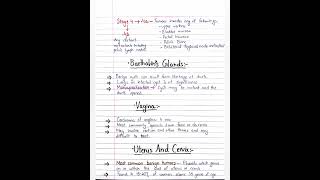 Stage 4 → 4a - Tumour invades any of following:-
- upper urethra
- Bladder mucosa
- Rectal mucosa
- Pelvic Bone
- Bilateral Regional node metastasis
4b
Any distant
metastasis including
pelvic lymph nodes
Bartholin's Glands:-
→ Benign with
→ Large or infected cyst is of significance
→ Marsupialization → Cyst may be incised and the
Vagina:-
→ Carcinoma of vagina is rare
→ Most commonly spreads down from cervix
→ May involve rectum and other tissues and very
difficult to treat.
Uterus And Cervix:-
→ Most common benign tumours → Fibroids which grow
on or within the wall of uterus or cervix
→ Found in of women above 30 years of age